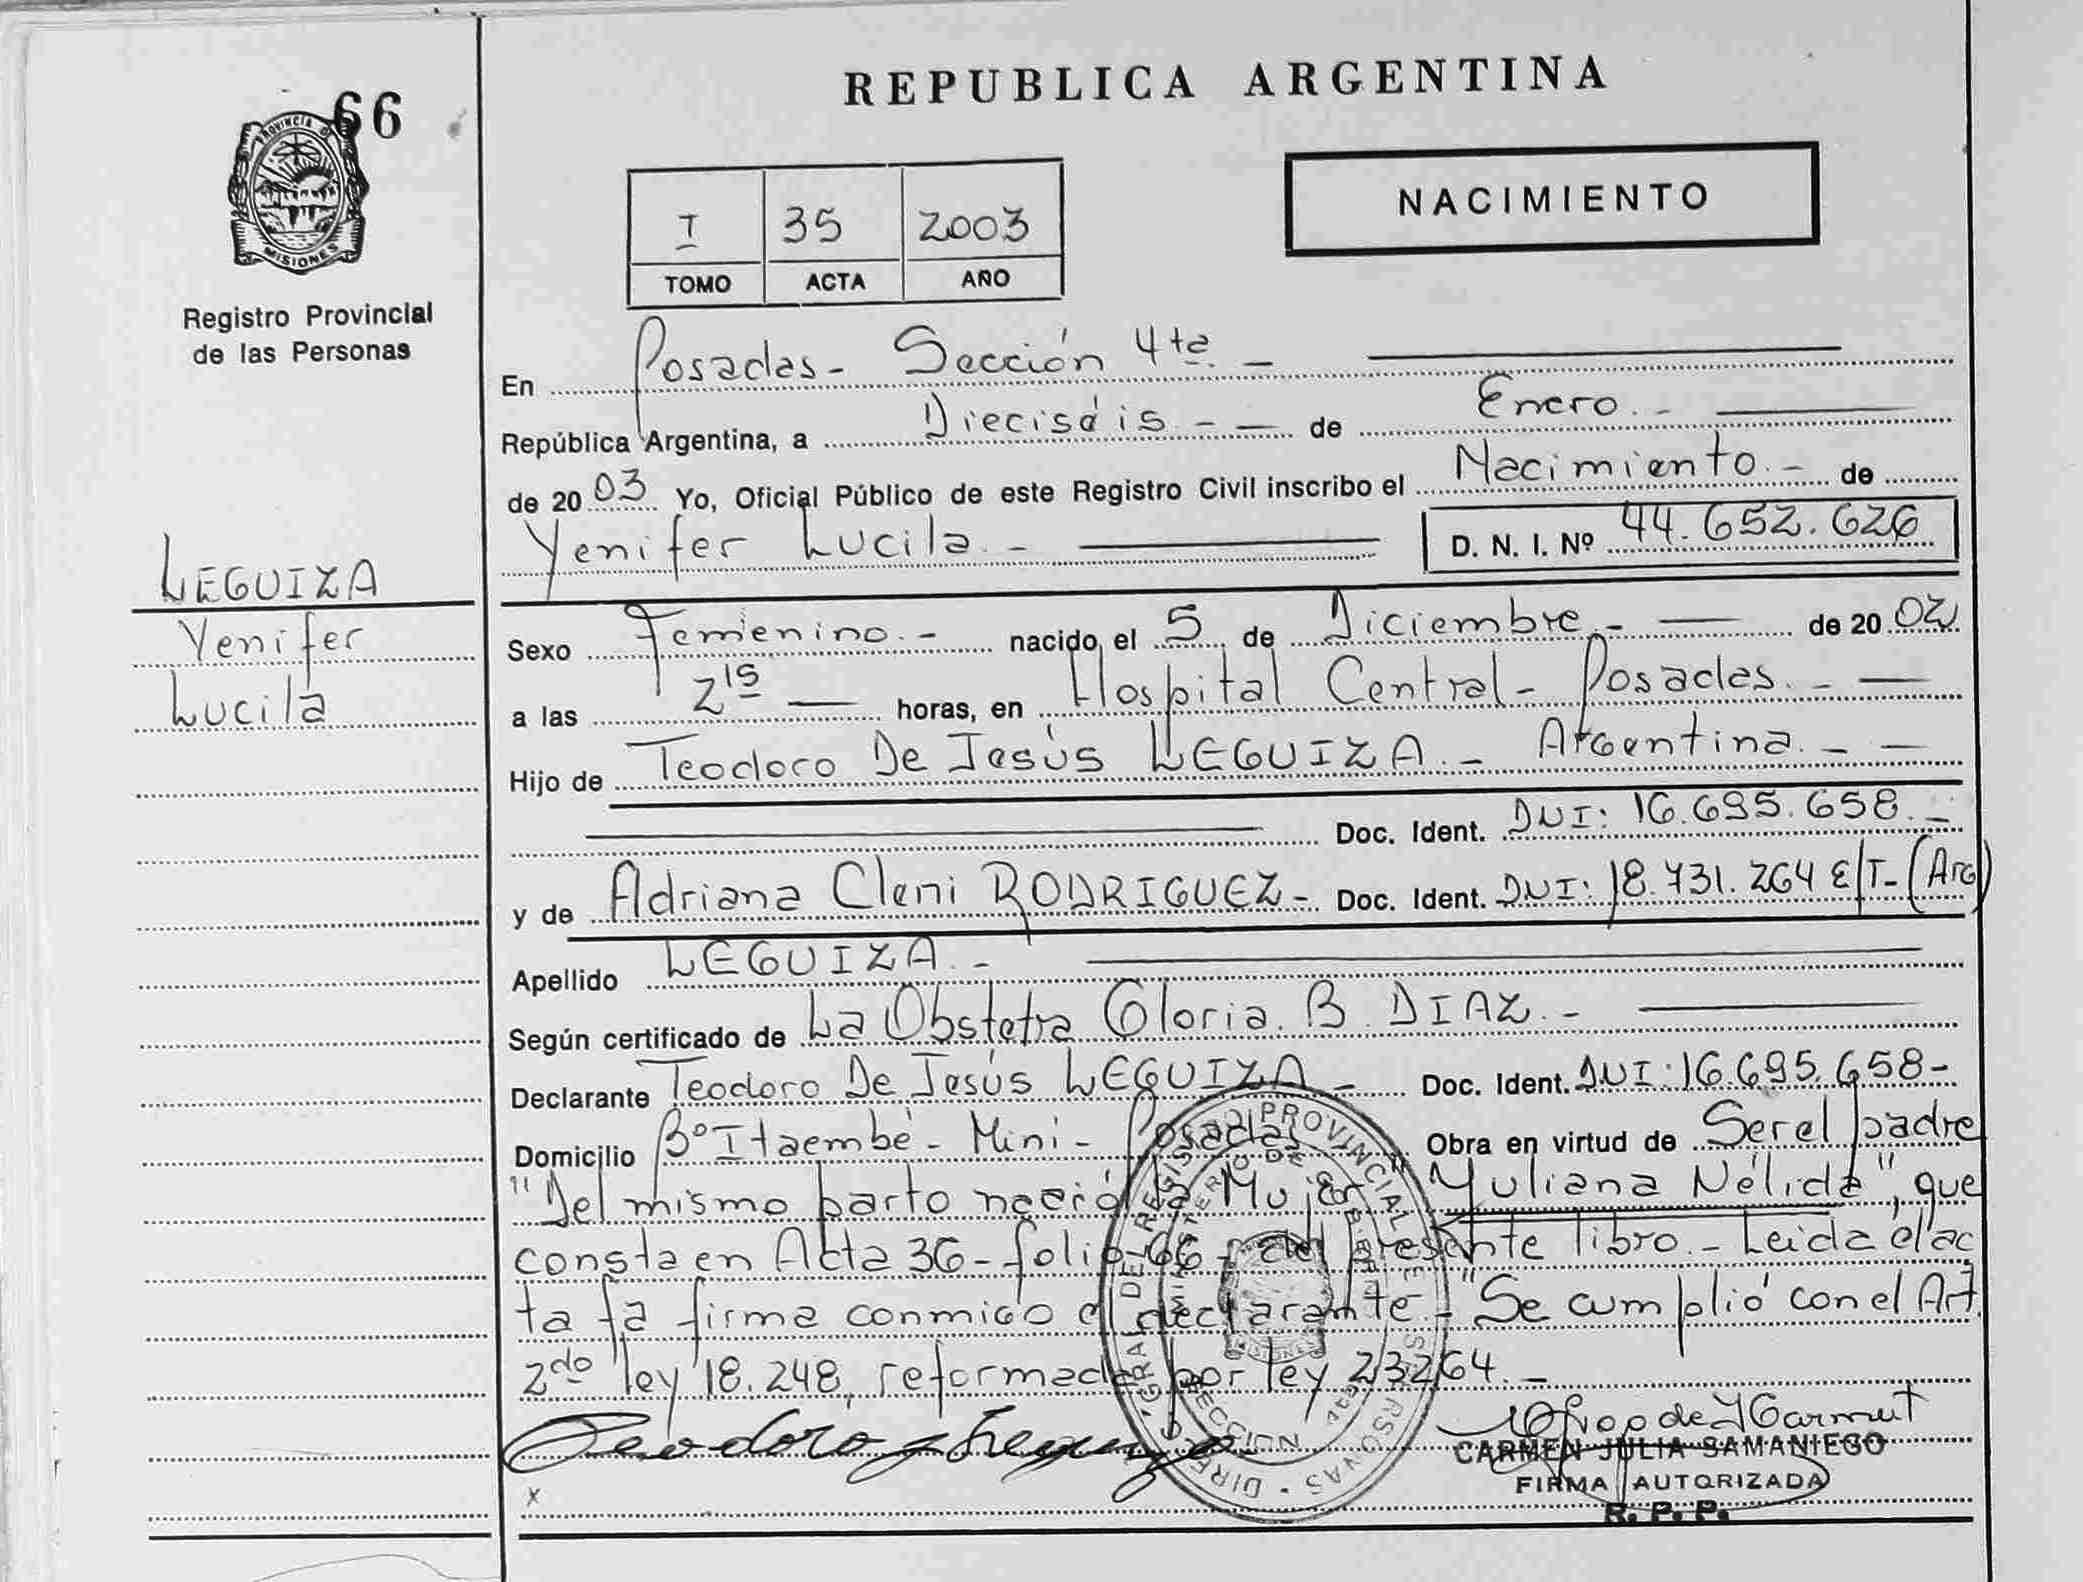 66
PROVINCIA DE
MISIONES
Registro Provincial
de las Personas
LEGUIZA
Yenifer
Lucila
REPUBLICA ARGENTINA
NACIMIENTO
I 35 2003
TOMO ACTA AÑO
En Posadas- Sección 4ta. -
República Argentina, a Dieciséis. - - de Enero. -
de 2003 Yo, Oficial Público de este Registro Civil inscribo el Nacimiento. - de
Yenifer Lucila. - D. N. I. Nº 44.652.626
Sexo Femenino. - nacido el 5 de Diciembre. - de 2002
a las 2 15 horas, en Hospital Central- Posadas. -
Hijo de Teodoro De Jesús LEGUIZA. - Argentina. -
Doc. Ident. DNI: 16.695.658. -
y de Adriana Cleni RODRIGUEZ- Doc. Ident. DNI: 18.731.264 E/T- (Arg)
Apellido LEGUIZA. -
Según certificado de La Obstetra Gloria. B. DIAZ. -
Declarante Teodoro De Jesús LEGUIZA - Doc. Ident. DNI: 16.695.658-
Domicilio Bº Itaembé- Mini- Posadas Obra en virtud de Ser el padre
"Del mismo parto nació la Mujer "Yuliana Nélida", que
consta en Acta 36- folio 66- del presente libro. - Leida el ac
ta la firma conmigo el declarante- "Se cumplió con el Art.
2do ley 18.248, reformada por ley 23264. -
Teodoro J Leguiza
CARMEN JULIA SAMANIEGO
FIRMA AUTORIZADA
R. P. P.
DIRECCION GRAL DEL REGISTRO PROVINCIAL DE LAS PERSONAS
x